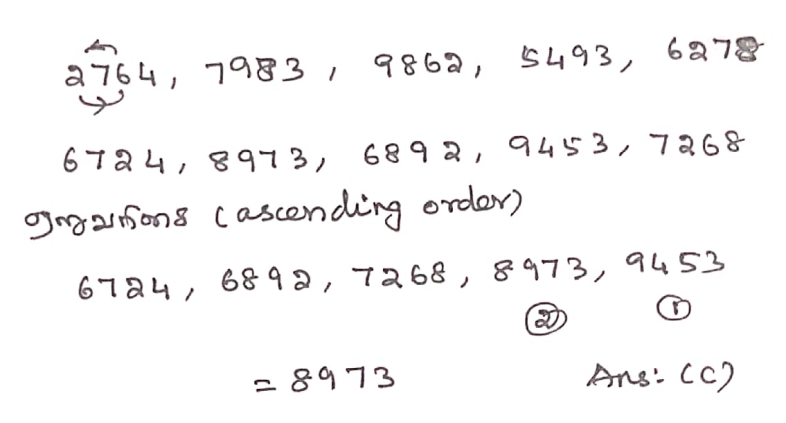 2764, 7983, 9862, 5493, 6278
6724, 8973, 6892, 9453, 7268
ஏறுவரிசை (ascending order)
6724, 6892, 7268, 8973, 9453
② ①
= 8973 Ans: (C)